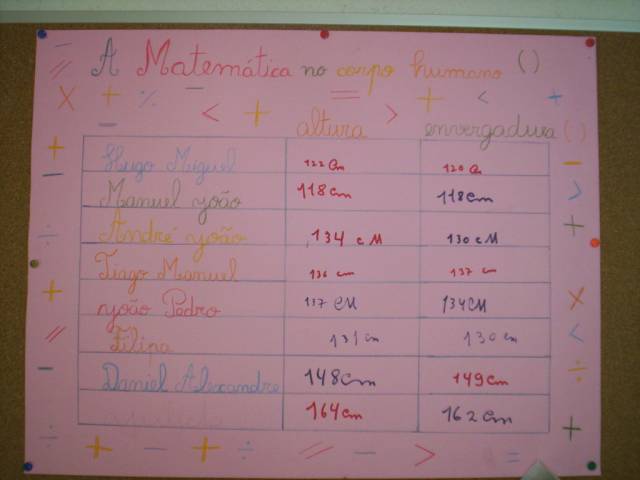 A Matemática no corpo humano ()
// X + % - < + = > + < +
altura envergadura ()
Hugo Miguel 122 cm 120 cm
Manuel João 118cm 118cm
André João 134 cM 130 cM
Tiago Manuel 136 cm 137 cm
João Pedro 137 CM 134CM
Filipa 131 cm 130 cm
Daniel Alexandre 148cm 149cm
164cm 162cm